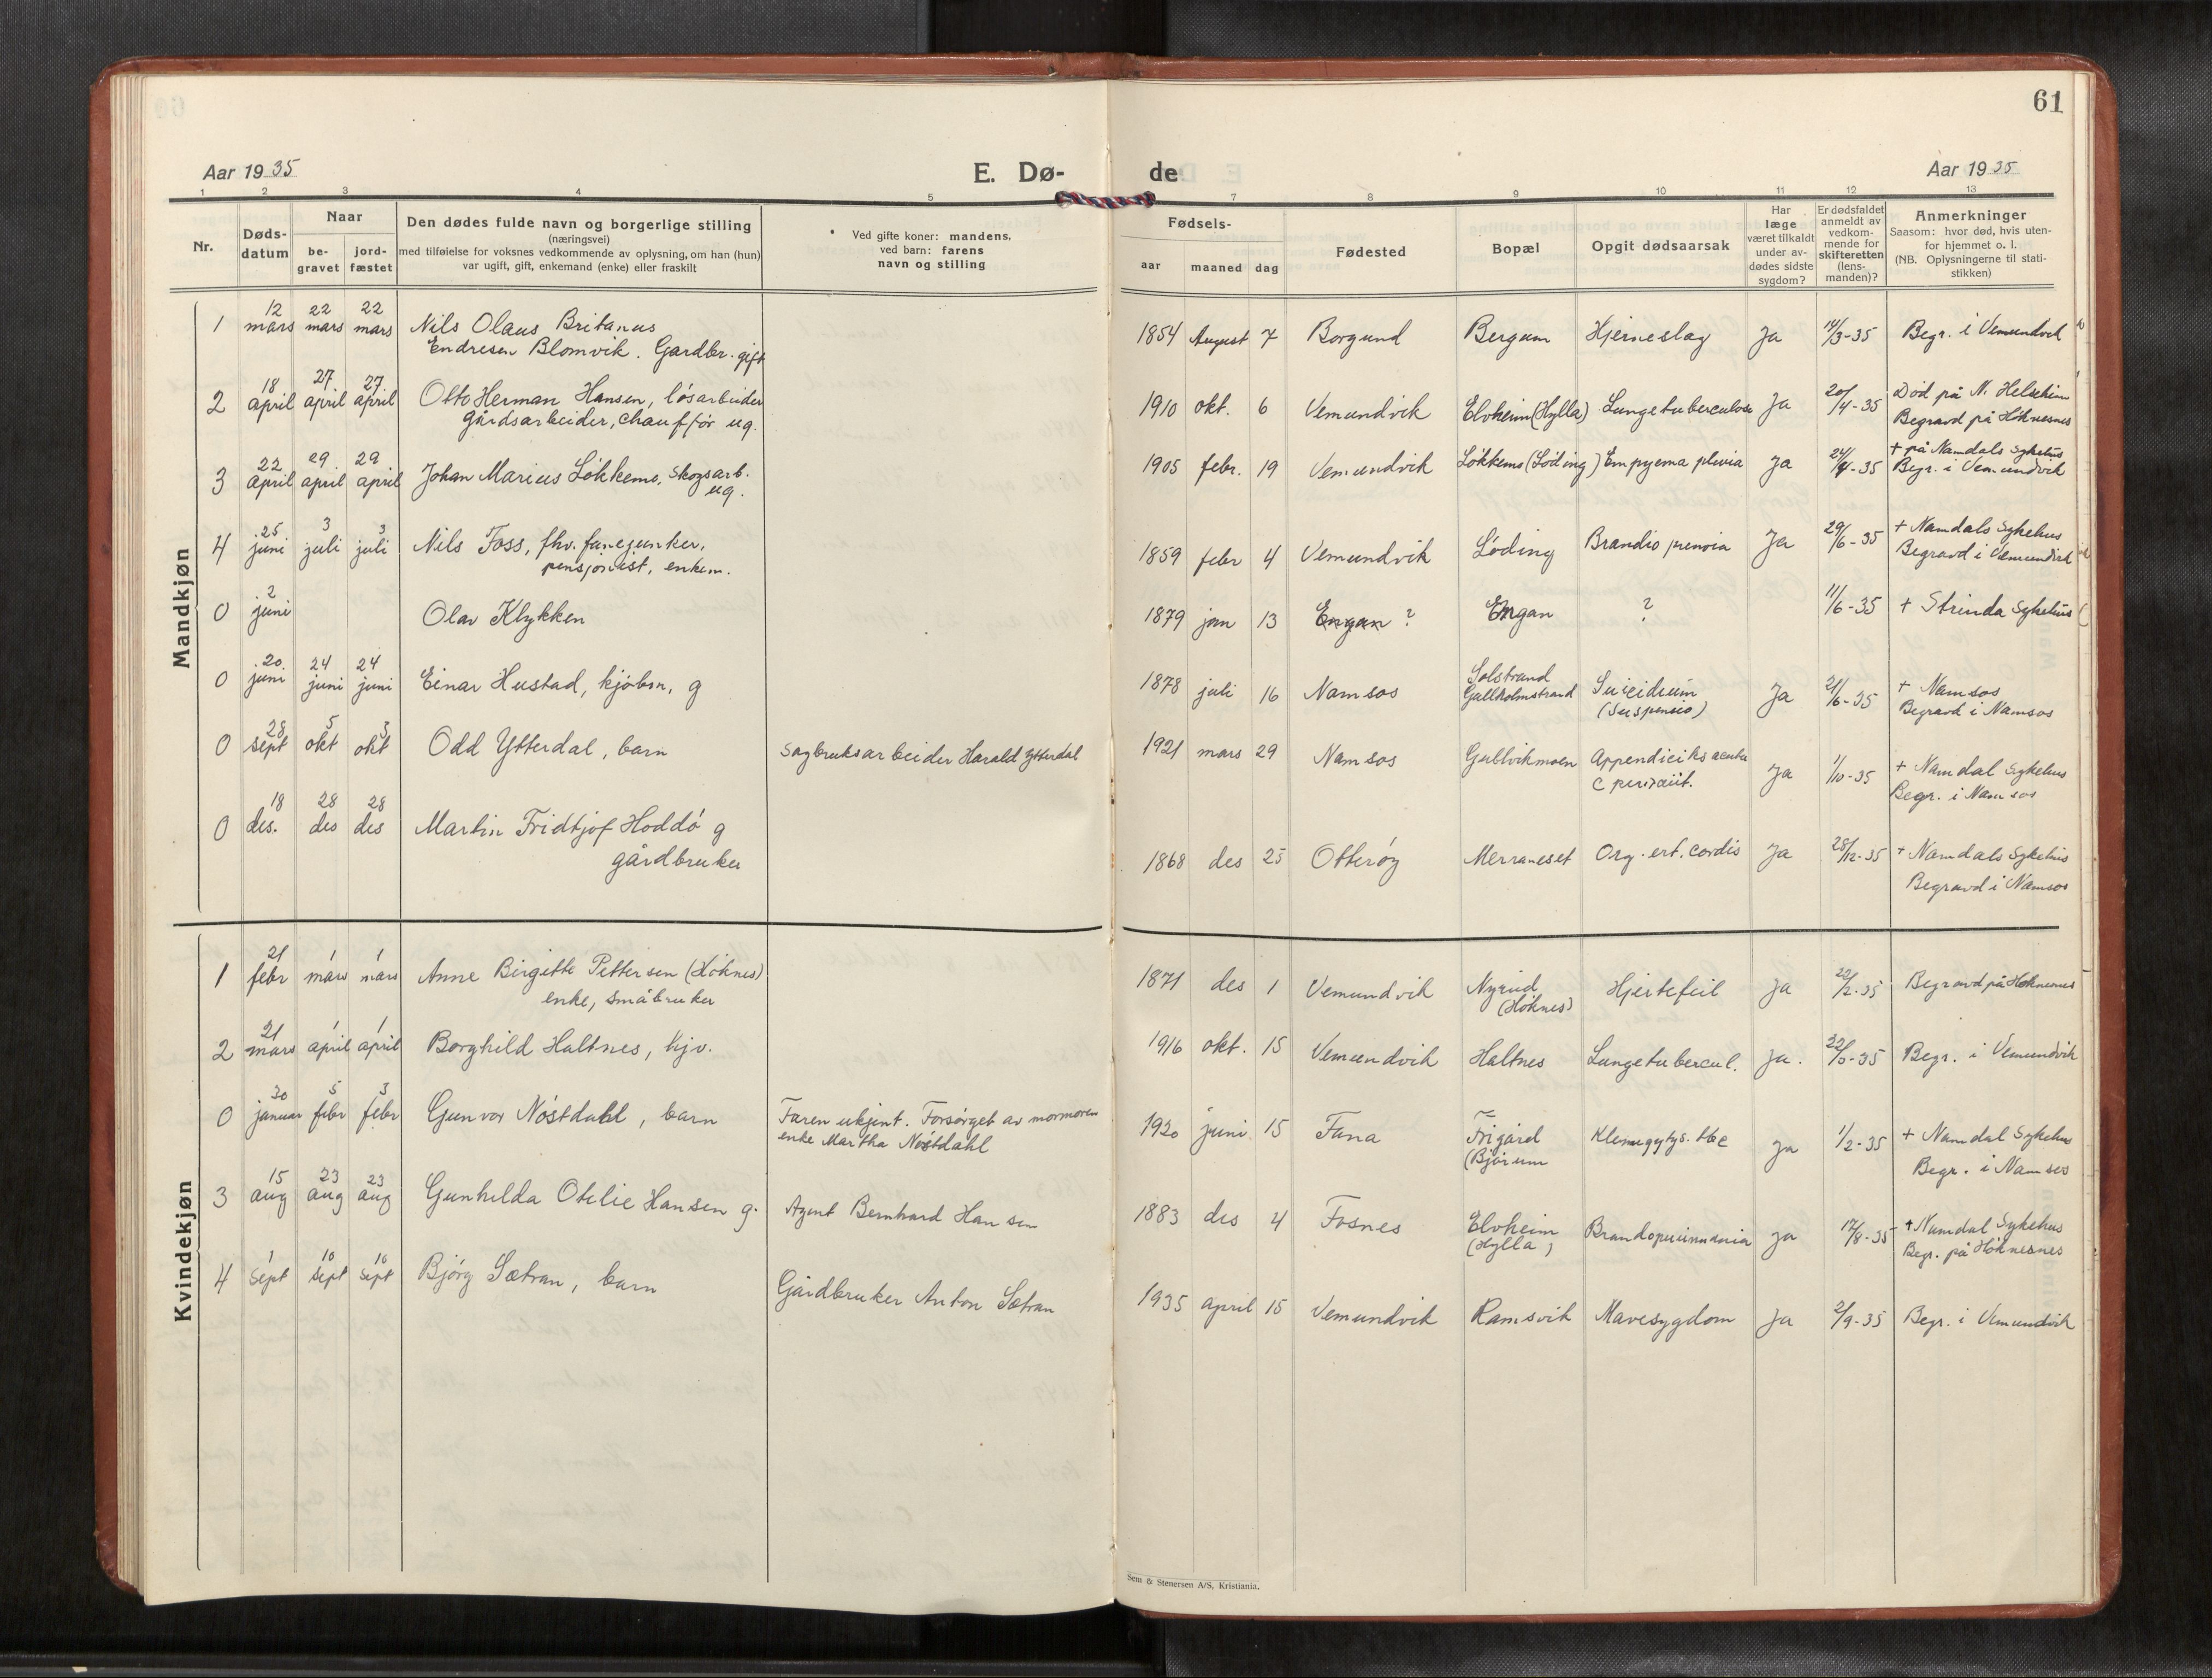 61
Aar 1935
E. Dø-
de
Aar 1935
1 2 3 4 5 7 8 9 10 11 12 13
Nr.
Døds-
datum
Naar
be-
gravet
jord-
fæstet
Den dødes fulde navn og borgerlige stilling
(næringsvei)
med tilføielse for voksnes vedkommende av oplysning, om han (hun)
var ugift, gift, enkemand (enke) eller fraskilt
Ved gifte koner: mandens,
ved barn: farens
navn og stilling
Fødsels-
aar maaned dag
Fødested
Bopæl
Opgit dødsaarsak
Har
læge
været tilkaldt
under av-
dødes sidste
sygdom?
Er dødsfaldet
anmeldt av
vedkom-
mende for
skifteretten
(lens-
manden)?
Anmerkninger
Saasom: hvor død, hvis uten-
for hjemmet o. l.
(NB. Oplysningerne til stati-
stikken)
Mandkjøn
1 12 mars 22 mars 22 mars Nils Olaus Britanus
Endresen Blomvik. Gardbr. gift
1854 August 7 Borgund Bergum Hjerneslag Ja 14/3-35 Begr. i Vemundvik
2 18 april 27 april 27 april Otto Herman Hansen, løsarbeider
gårdsarbeider, chauffør ug.
1910 okt. 6 Vemundvik Elvheim (Hylla) Lungetuberculose Ja 20/4-35 Død på N. Helseheim
Begravd på Høknesnes
3 22 april 29 april 29 april Johan Marius Løkkemo, skogsarb.
ug.
1905 febr. 19 Vemundvik Løkkemo (Løding) Empyema Ja 24/4-35 + på Namdals Sykehus
Begr. i Vemundvik
4 25 juni 3 juli 3 juli Nils Foss, fhv. fanejunker,
pensjonist, enkem.
1859 febr 4 Vemundvik Løding Ja 29/6-35 + Namdals Sykehus
Begravd i Vemundvik
0 2 juni Olav Klykken
1879 jan 13 Engan ? Engan ? 11/6-35 + Strinda Sykehus
0 20 juni 24 juni 24 juni Einar Hustad, kjøbm, g
1878 juli 16 Namsos Solstrand
Gullholmstrand Suicidium
(Suspensio) Ja 21/6-35 + Namsos
Begravd i Namsos
0 28 sept 5 okt 5 okt Odd Ytterdal, barn Sagbruksarbeider Harald Ytterdal
1921 mars 29 Namsos Gullvikmoen Ja 1/10-35 + Namdal Sykehus
Begr. i Namsos
0 18 des. 28 des 28 des Martin Fridtjof Hoddø g
gårdbruker
1868 des 25 Otterøy Merraneset cordis Ja 28/12-35 + Namdals Sykehus
Begravd i Namsos
Kvindekjøn
1 21 febr 1 mars 1 mars Anne Birgitte Pettersen (Høknes)
enke, småbruker
1871 des 1 Vemundvik Nyrud
(Høknes) Hjertefeil Ja 22/2-35 Begravd på Høknesnes
2 21 mars 1 april 1 april Borghild Haltnes,
1916 okt. 15 Vemundvik Haltnes Lungetubercul. Ja. 22/3-35 Begr. i Vemundvik
0 30 januar 5 febr 5 febr Gunvor Nøstdahl, barn Faren ukjent. Forsørget av mormoren
enke Martha Nøstdahl
1920 juni 15 Fana Frigård
(Bjørum Ja 1/2-35 + Namdal Sykehus
Begr. i Namsos
3 15 aug 23 aug 23 aug Gunhilda Otelie Hansen g. Agent Bernhard Hansen
1883 des 4 Fosnes Elvheim
(Hylla) Ja 17/8-35 + Namdal Sykehus
Begr. på Høknesnes
4 1 sept 10 sept 10 sept Bjørg Sætran, barn Gårdbruker Anton Sætran
1935 april 15 Vemundvik Ramsvik Mavesygdom Ja 2/9-35 Begr. i Vemundvik
Sem & Stenersen A/S, Kristiania.